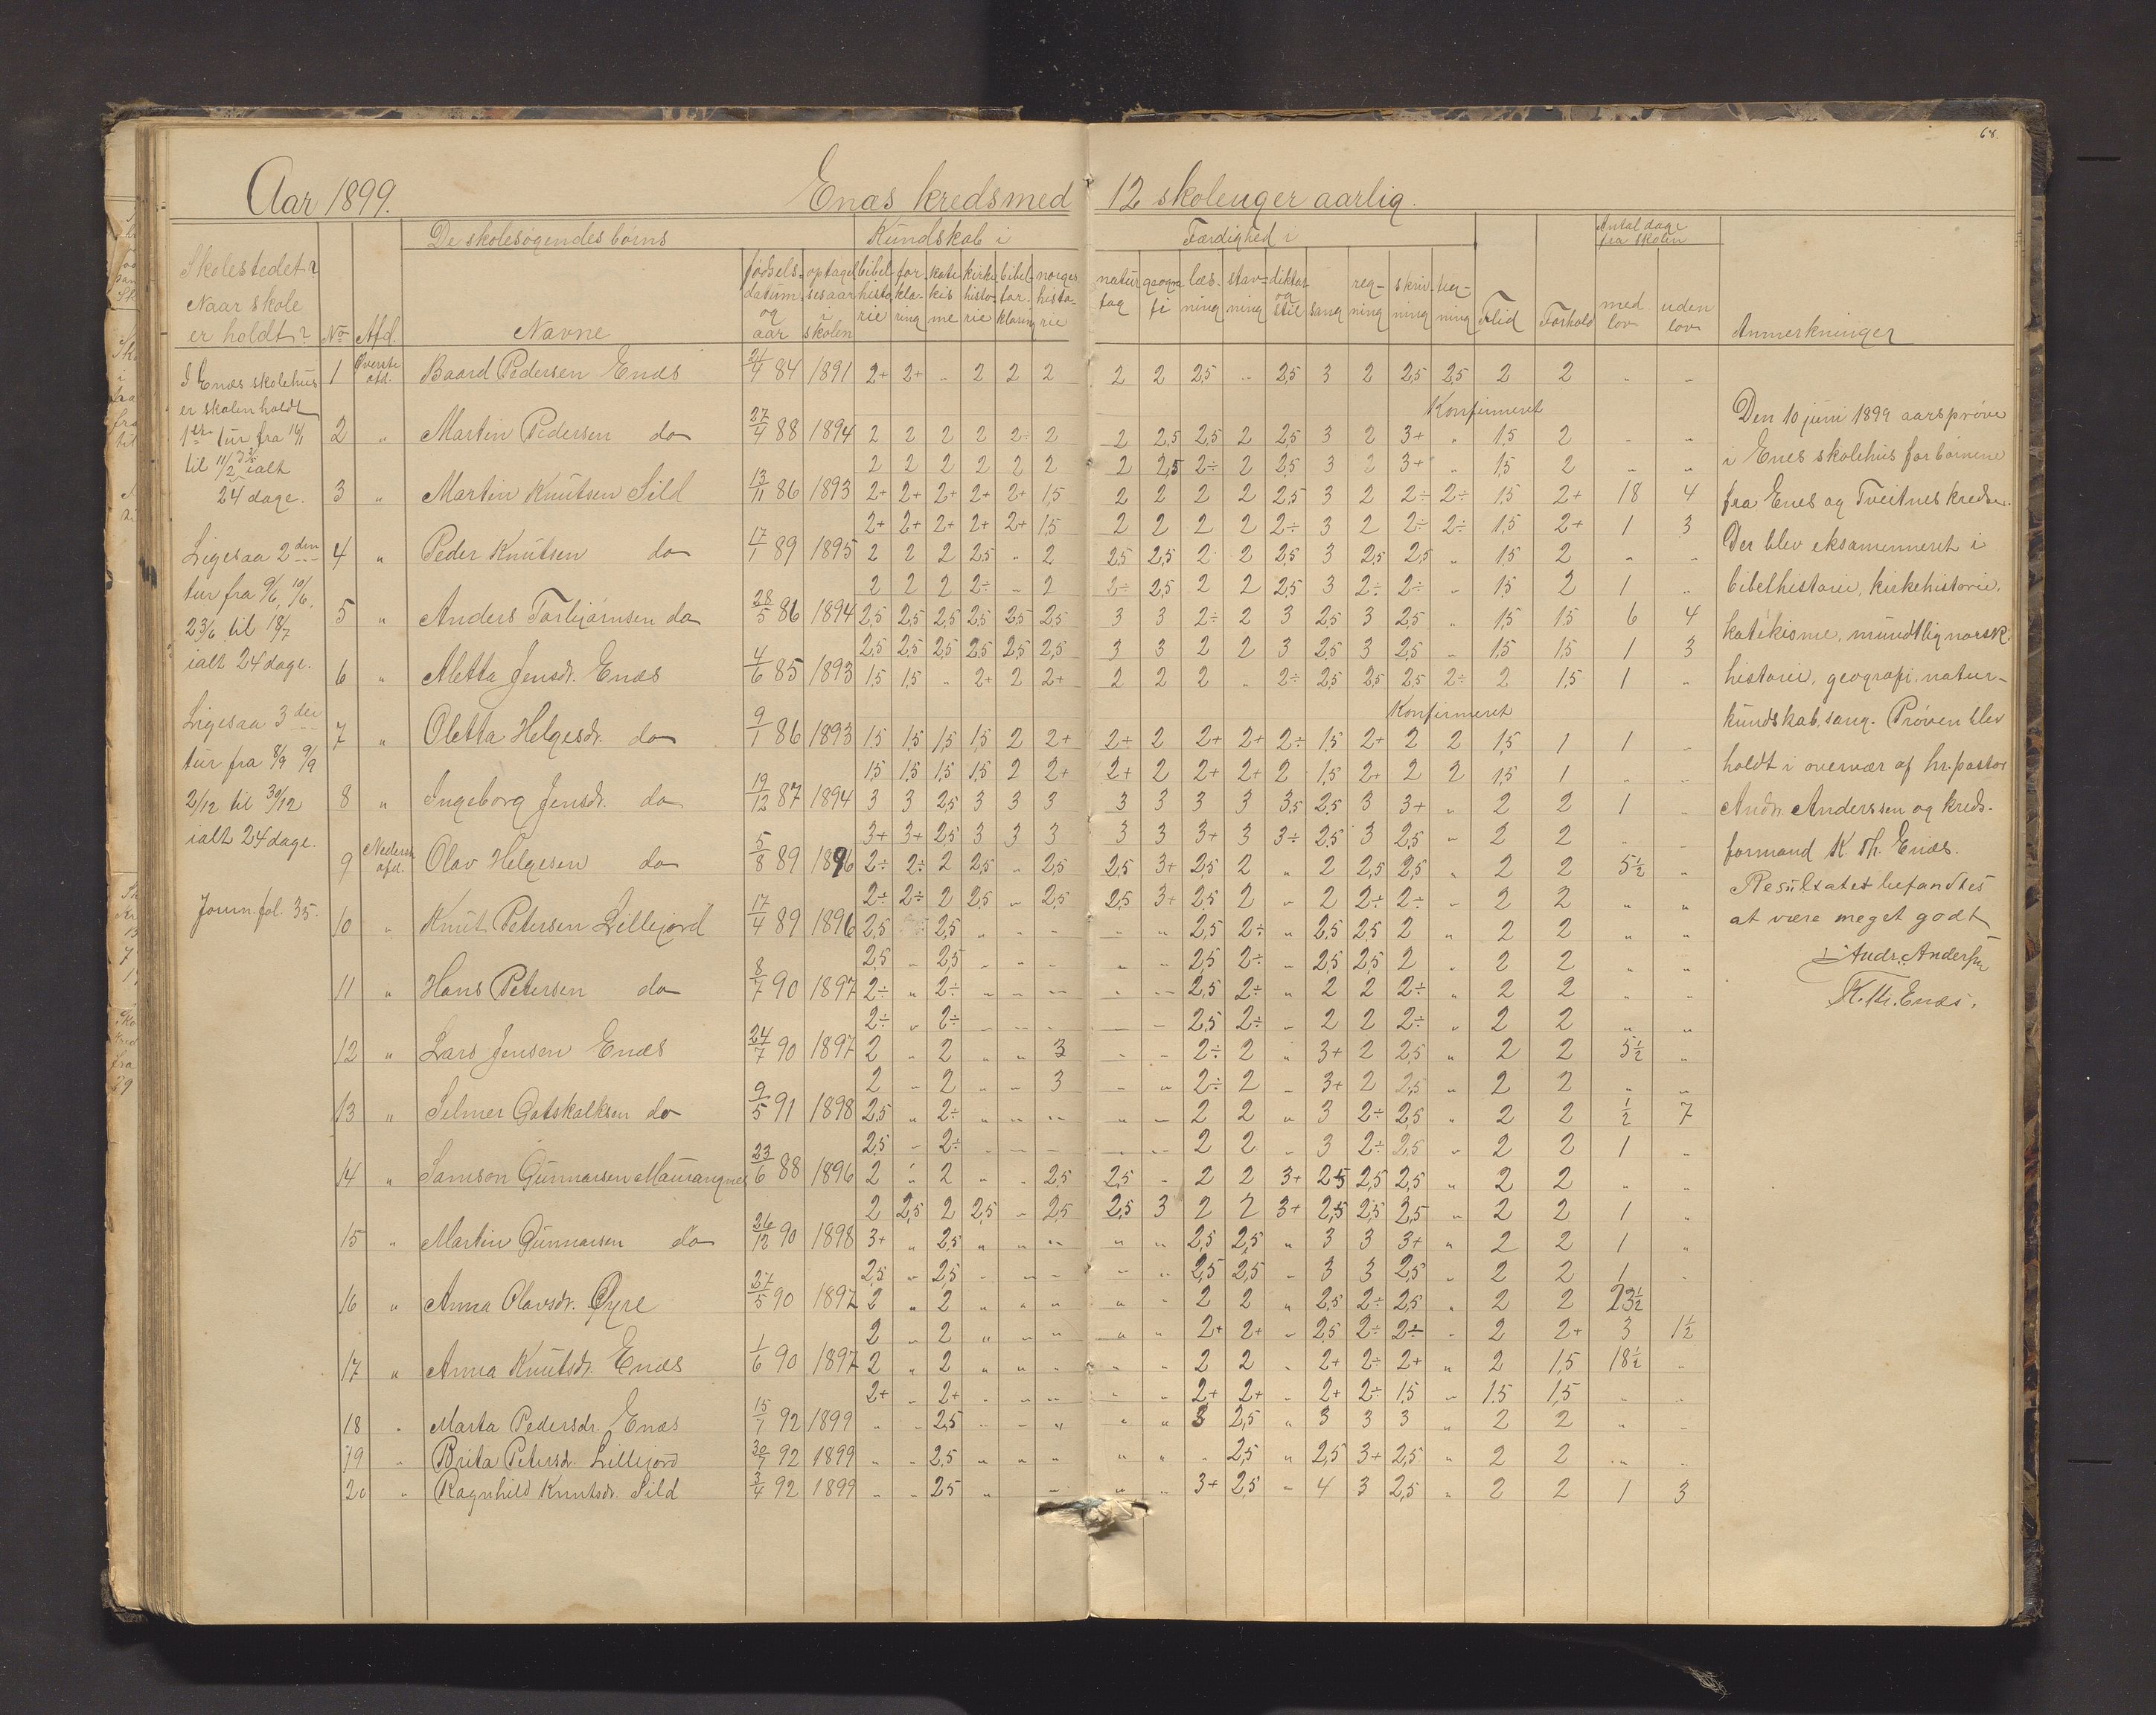 68.
Aar 1899. Enæs kreds med 12 skoleuger aarlig.
De skolesøgendes børns Kundskab i Færdighed i Antal dage fra skolen
Skolestedet? Naar skole er holdt? No Afd. Navne fødselsdatum og aar optagelsesaar i skolen bibelhistorie forklaring katekisme kirkehistorie bibelforklaring norges historie naturfag geografi læsning stavning diktat og stil sang regning skrivning tegning Flid Forhold med lov uden lov Anmerkninger
I Enæs skolehus
er skolen holdt
1ste tur fra 16/11
til 11/2 ialt
24 dage.
Ligesaa 2den
tur fra 9/6, 10/6,
23/6 til 18/7
ialt 24 dage.
Ligesaa 3die
tur fra 8/9 9/9
2/12 til 30/12
ialt 24 dage.
Journ. fol. 35.
1 Øverste afd. Baard Pedersen Enæs 21/4 84 1891 2+ 2+ „ 2 2 2 2 2 2,5 „ 2,5 3 2 2,5 2,5 2 2 „ „
Konfirmeret
2 „ Martin Pedersen do 27/4 88 1894 2 2 2 2 2÷ 2 2 2,5 2,5 2 2,5 3 2 3+ „ 1,5 2 „ „
2 2 2 2 2 2 2 2,5 2÷ 2 2,5 3 2 3+ „ 1,5 2 „ „
3 „ Martin Knutsen Sild 13/11 86 1893 2+ 2+ 2+ 2+ 2+ 1,5 2 2 2 2 2,5 3 2 2÷ 2÷ 1,5 2+ 18 4
2+ 2+ 2+ 2+ 2+ 1,5 2 2 2 2 2÷ 3 2 2÷ 2÷ 1,5 2+ 1 3
4 „ Peder Knutsen do 17/1 89 1895 2 2 2 2,5 „ 2 2,5 2,5 2 2 2,5 3 2,5 2,5 „ 1,5 2 „ „
2 2 2 2÷ „ 2 2÷ 2,5 2 2 2,5 3 2÷ 2÷ „ 1,5 2 1 „
5 „ Anders Torbjørnsen do 28/5 86 1894 2,5 2,5 2,5 2,5 2,5 2,5 3 3 2÷ 2 3 2,5 3 2,5 „ 1,5 1,5 6 4
2,5 2,5 2,5 2,5 2,5 2,5 3 3 2 2 3 2,5 3 2,5 „ 1,5 1,5 1 3
6 „ Aletta Jensdr. Enæs 4/6 85 1893 1,5 1,5 „ 2+ 2 2+ 2 2 2 „ 2÷ 2,5 2,5 2,5 2÷ 2 1,5 1 „
Konfirmeret
7 „ Oletta Helgesdr. do 9/1 86 1893 1,5 1,5 1,5 1,5 2 2+ 2+ 2 2+ 2+ 2÷ 1,5 2+ 2 2 1,5 1 1 „
1,5 1,5 1,5 1,5 2 2+ 2+ 2 2+ 2+ 2 1,5 2+ 2 2 1,5 1 „ „
8 „ Ingeborg Jensdr. do 19/12 87 1894 3 3 2,5 3 3 3 3 3 3 3 3,5 2,5 3 3+ „ 2 2 1 „
3+ 3+ 2,5 3 3 3 3 3 3+ 3 3÷ 2,5 3 2,5 „ 2 2 „ „
9 Nederste afd. Olav Helgesen do 5/8 89 1896 2÷ 2÷ 2 2,5 „ 2,5 2,5 3+ 2,5 2 „ 2 2,5 2,5 „ 2 2 5½ „
2÷ 2÷ 2 2,5 „ 2,5 2,5 3+ 2,5 2 „ 2 2÷ 2÷ „ 2 2 „ „
10 „ Knut Petersen Lillejord 17/4 89 1896 2,5 2,5 „ „ „ „ „ 2,5 2÷ „ 2,5 2,5 2 „ 2 2 „ „
2,5 „ 2,5 „ „ „ „ „ 2,5 2÷ „ 2,5 2,5 2 „ 2 2 „ „
11 „ Hans Petersen do 8/7 90 1897 2÷ „ 2÷ „ „ „ „ „ 2,5 2÷ „ 2 2 2÷ „ 2 2 „ „
2÷ „ 2÷ „ „ „ „ „ 2,5 2÷ „ 2 2 2÷ „ 2 2 „ „
12 „ Lars Jensen Enæs 24/7 90 1897 2 „ 2 „ „ 3 „ „ 2÷ 2 „ 3+ 2 2,5 „ 2 2 5½ „
2 „ 2 „ „ 3 „ „ 2÷ 2 „ 3+ 2 2,5 „ 2 2 „ „
13 „ Selmer Gotskalksen do 9/5 91 1898 2,5 „ 2÷ „ „ „ „ „ 2 2 „ 3 2÷ 2,5 „ 2 2 ½ 7
2,5 „ 2÷ „ „ „ „ „ 2 2 „ 3 2÷ 2,5 „ 2 2 1 „
14 „ Samson Gunnarsen Maurangnes 23/6 88 1896 2 „ 2 „ „ 2,5 2,5 „ 2 2 3+ 2,5 2,5 2,5 „ 2 2 „ „
2 2,5 2 2,5 „ 2,5 2,5 3 2 2 3+ 2,5 2,5 2,5 „ 2 2 1 „
15 „ Martin Gunnarsen do 26/12 90 1898 3+ „ 2,5 „ „ „ „ „ 2,5 2,5 „ 3 3 3+ „ 2 2 1 „
2,5 „ 2,5 „ „ „ „ „ 2,5 2,5 „ 3 3 2,5 „ 2 2 1 „
16 „ Anna Olavsdr. Øyre 27/5 90 1897 2 „ 2 „ „ „ „ „ 2 2 „ 2,5 2÷ 2,5 „ 2 2 23½
2 „ 2 „ „ „ „ „ 2+ 2+ „ 2,5 2÷ 2÷ „ 2 2+ 3 1½
17 „ Anna Knutsdr. Enæs 1/6 90 1897 2 „ 2 „ „ „ „ „ 2 2 „ 2+ 2÷ 2+ „ 2 1,5 18½ „
2+ „ 2+ „ „ „ „ „ 2+ 2+ „ 2+ 2÷ 1,5 „ 1,5 1,5 „ „
18 „ Marta Pedersdr. Enæs 15/1 92 1899 „ „ 2,5 „ „ „ „ „ 3 2,5 „ 3 3 3 „ 2 2 „ „
19 „ Brita Petersdr. Lillejord 30/7 92 1899 „ „ 2,5 „ „ „ „ „ „ 2,5 „ 2,5 3+ 2,5 „ 2 2 „ „
20 „ Ragnhild Knutsdr. Sild 3/4 92 1899 „ „ 2,5 „ „ „ „ 3+ 2,5 „ 4 3 2,5 „ 2 2 1 3
Den 10 juni 1899 aarsprøve
i Enes skolehus for børnene
fra Enes og Tveitnes kredse.
Der blev eksamenneret i
bibelhistorie, kirkehistorie,
katekisme, mundtlig norsk,
historie, geografi, natur-
kundskab, sang. Prøven blev
holdt i overvær af hr. pastor
Andr. Anderssen og kreds-
formand K. Th. Enæs.
Resultatet befandtes
at være meget godt
Andr. Anderssen
K. Th. Enæs.